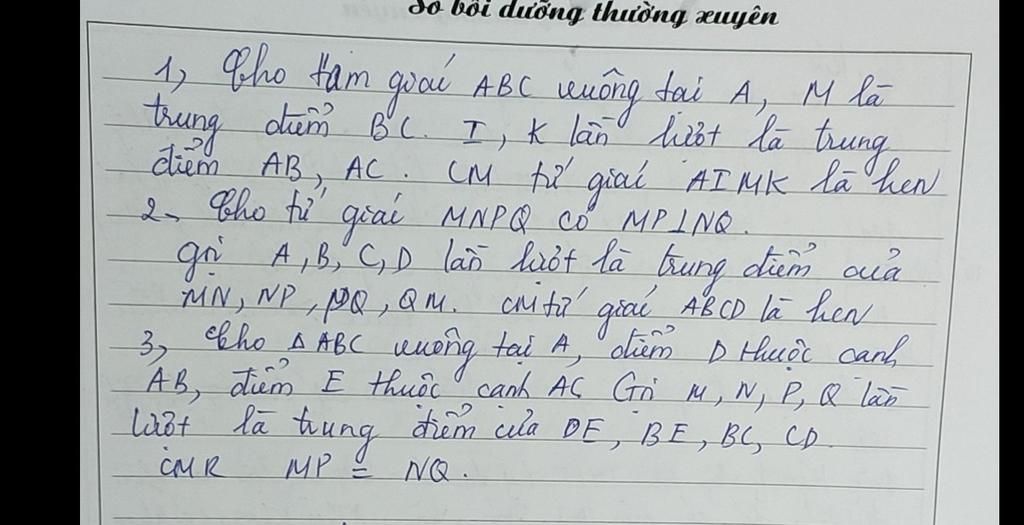 Sổ bồi dưỡng thường xuyên
1, Cho tam giác ABC vuông tại A, M là
trung điểm BC. I, K lần lượt là trung
điểm AB, AC. CM tứ giác AIMK là hcn
2, Cho tứ giác MNPQ có MP⊥NQ.
gọi A, B, C, D lần lượt là trung điểm của
MN, NP, PQ, QM. CM tứ giác ABCD là hcn
3, Cho Δ ABC vuông tại A, điểm D thuộc cạnh
AB, điểm E thuộc cạnh AC Gọi M, N, P, Q lần
lượt là trung điểm của DE, BE, BC, CD.
CMR MP = NQ.